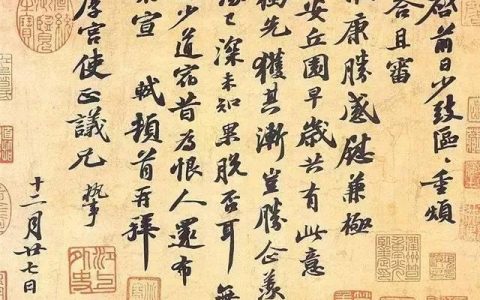 啓前日少致區〻重煩
答且審
康勝感慰兼極
安丘園早歲共有此意
獨先獲其漸豈勝企羨
緣已深未知果脫否耳無
少道宿昔為恨人還布
不宣 軾頓首再拜
厚宮使正議兄執事
十二月廿七日